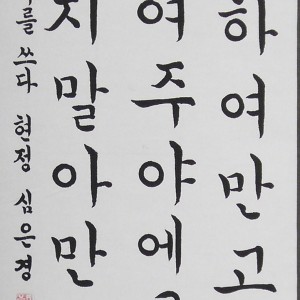 하여만고
여주야에
지말아만
를 쓰다 현정 심은경